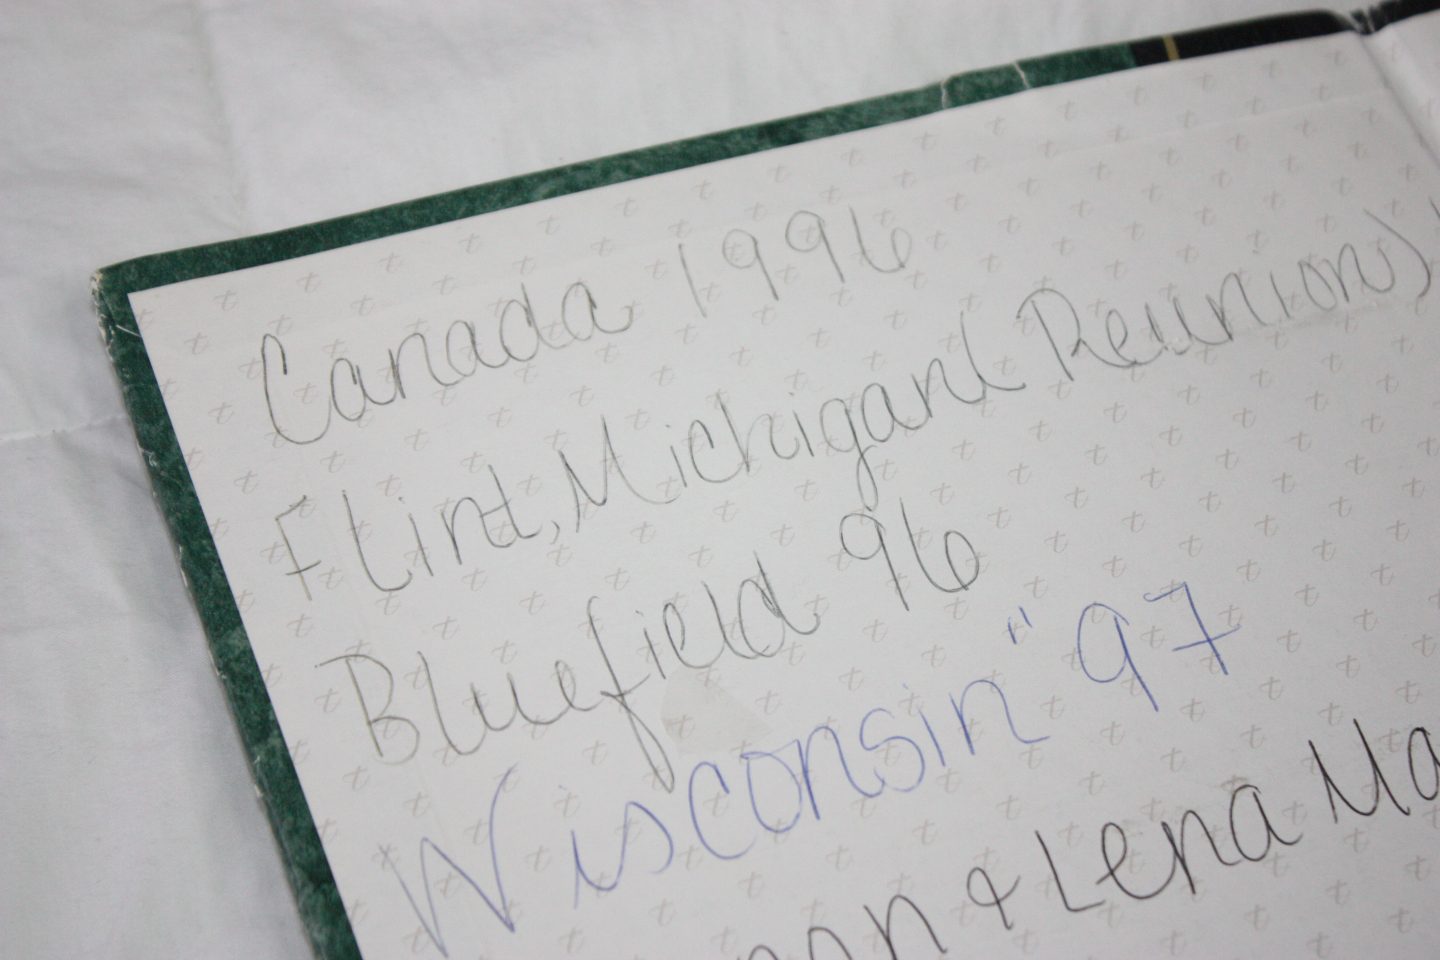 Canada 1996
Flint, Michigan (Reunion)
Bluefield 96
Wisconsin "97
& Lena